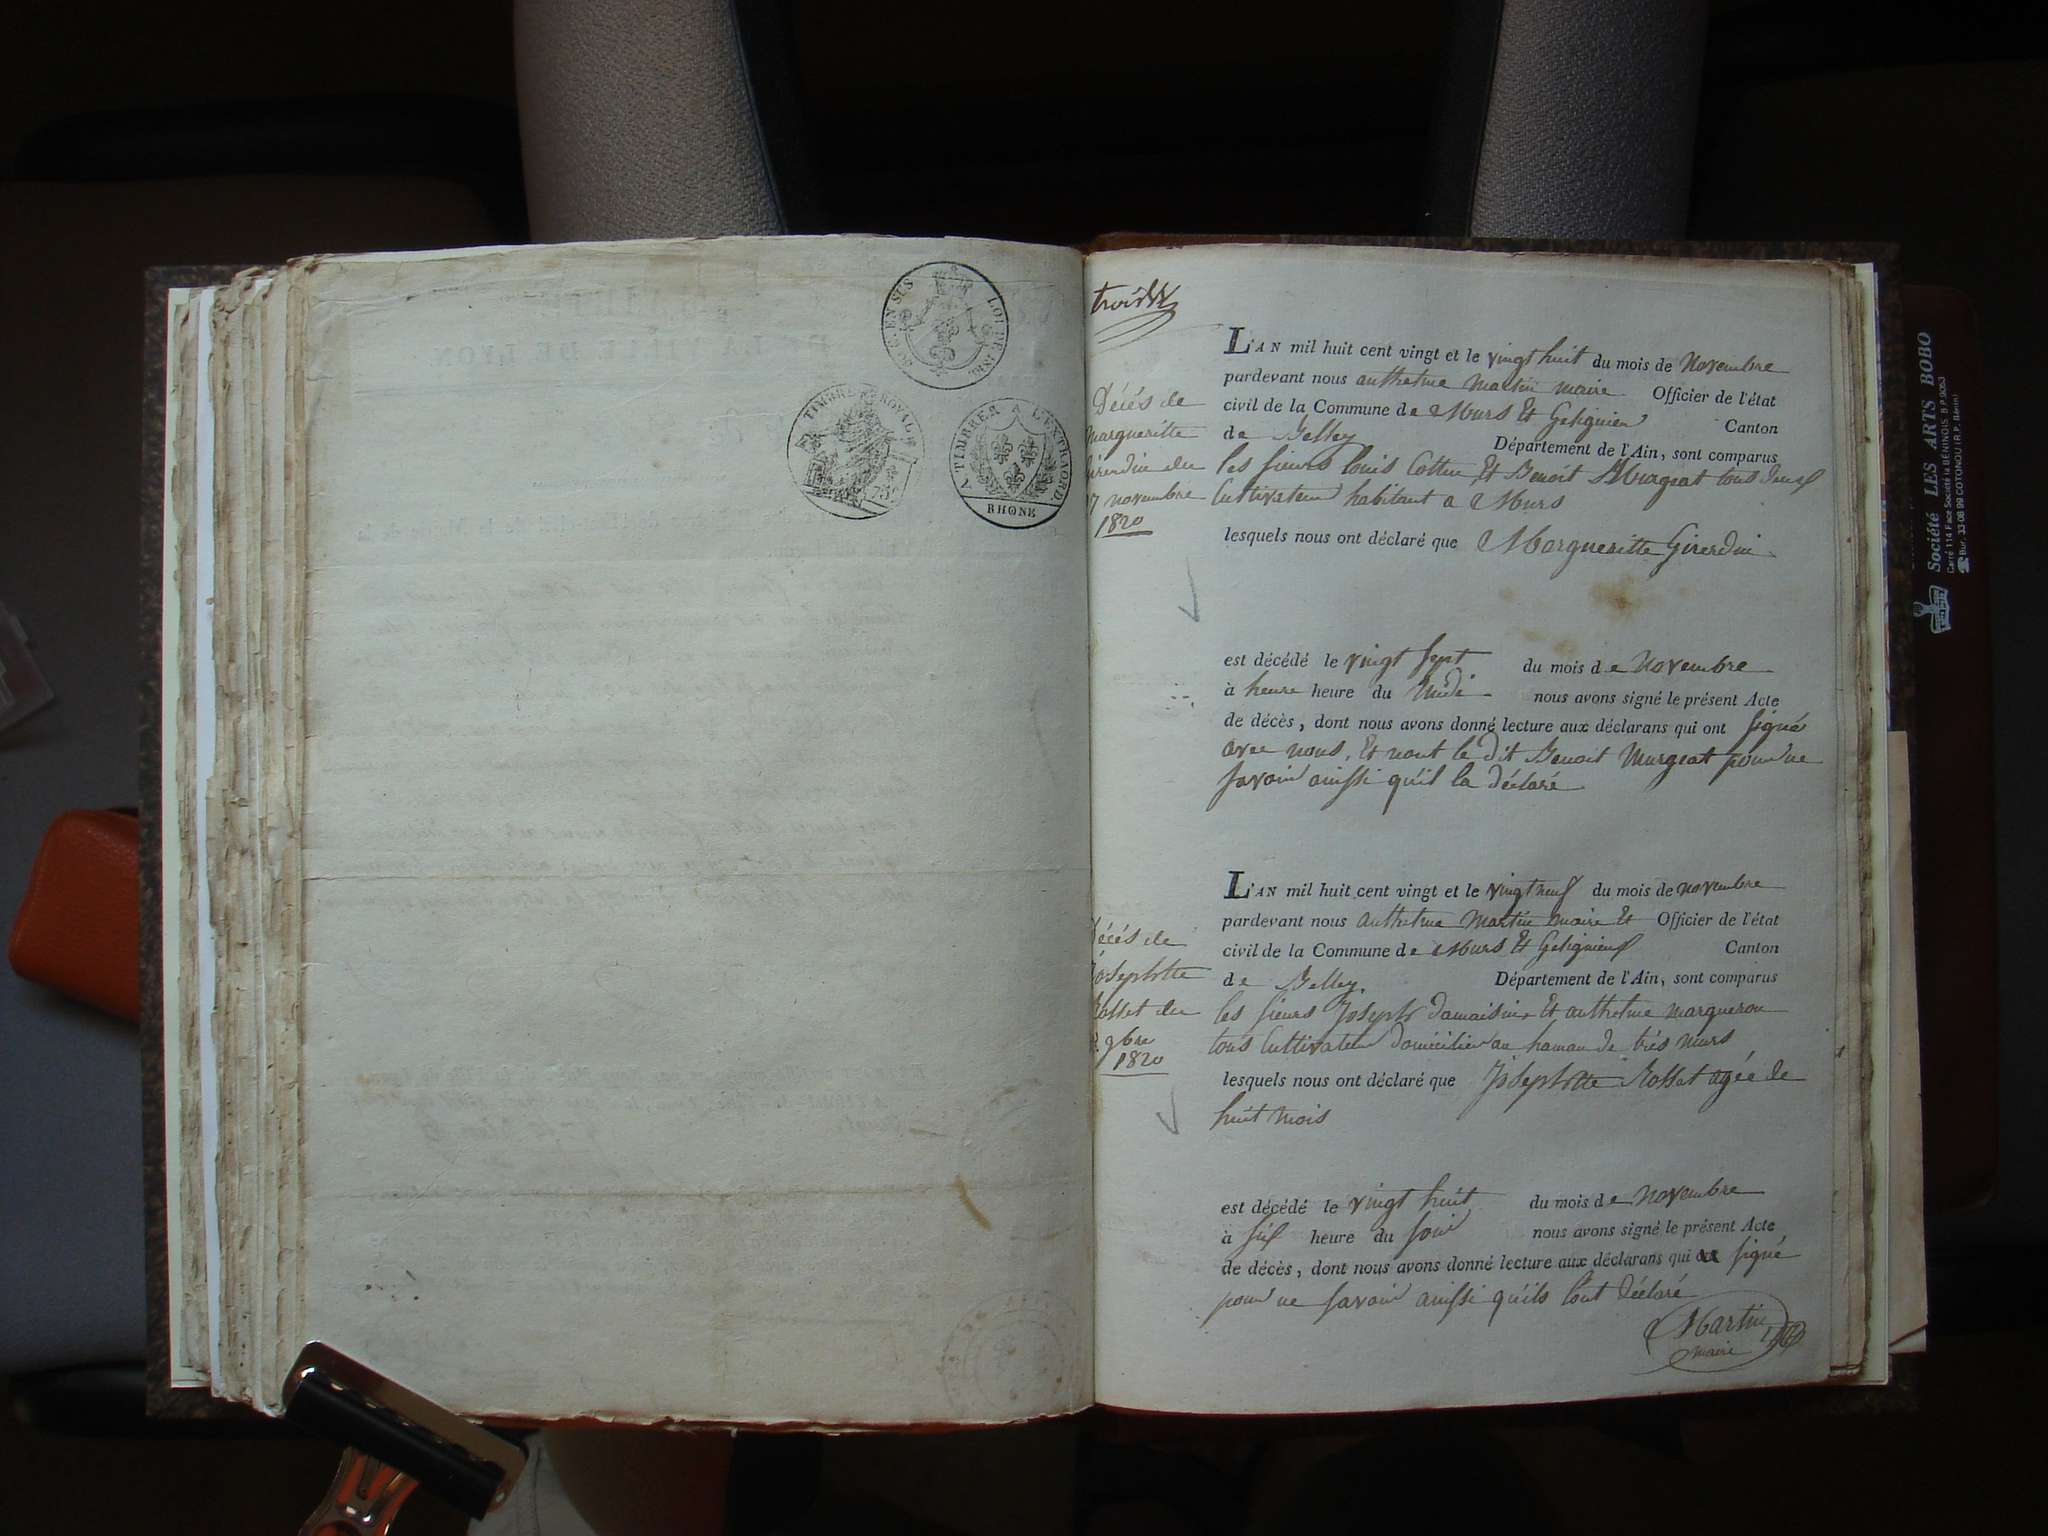 LOI DE 1816.
TIMBRE ROYAL
75
TIMBRER A L'EXTRAORD.
RHONE
DE LYON.
Décés de
margueritte
du
novembre
1820
L'AN mil huit cent vingt et le vingt huit du mois de novembre
pardevant nous anthelme martin maire Officier de l'état
civil de la Commune de Murs Et Gelignieu Canton
de Belley Département de l'Ain, sont comparus
les sieurs louis Cottin Et Benoit Murgeat tous deux
Cultivateur habitant a Murs
lesquels nous ont déclaré que Margueritte Girerdin
est décédé le vingt sept du mois de novembre
à heure heure du midi nous avons signé le présent Acte
de décès, dont nous avons donné lecture aux déclarans qui ont signé
avec nous, Et nont le dit Benoit Murgeat pour ne
savoir ainssi qu'il la déclaré
Décés de
Josephtte
Rosset du
9bre
1820
L'AN mil huit cent vingt et le vingt neuf du mois de novembre
pardevant nous anthelme martin maire Et Officier de l'état
civil de la Commune de Murs Et Gelignieux Canton
de Belley. Département de l'Ain, sont comparus
les sieurs Joseph damaisin Et anthelme margueron
tous Cultivateur domicilier au hamau de trés murs
lesquels nous ont déclaré que Josephtte Rosset agée de
huit mois
est décédé le vingt huit du mois de novembre
à six heure du soir nous avons signé le présent Acte
de décès, dont nous avons donné lecture aux déclarans qui signé
pour ne savoir ainssi qu'ils lont déclaré
Martin
maire
Société LES ARTS BOBO
Carré 114 Face Société la BÉNINOIS B.P. 9053
Bur. 33 08 99 COTONOU (R.P. Bénin)